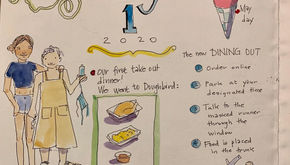 May
day
1
2020
Our first take out
dinner!
We went to Doughbird:
The new DINING OUT
Order online
Park at your
designated time
Talk to the
masked runner
through the
window
Food is placed
in the trunk